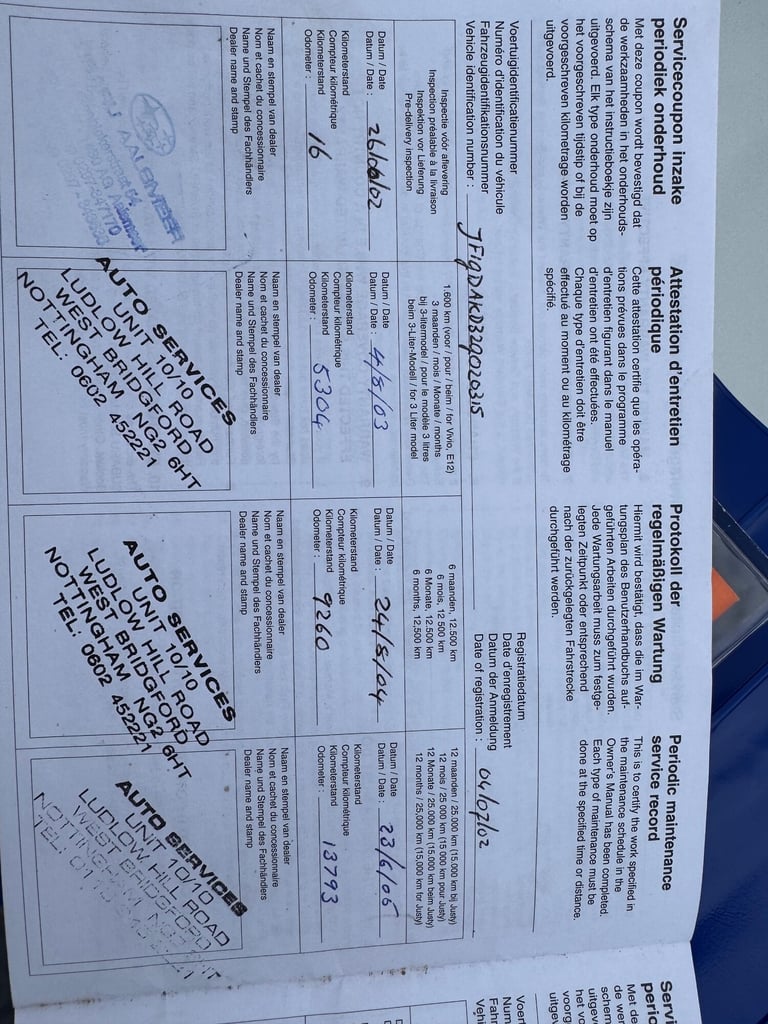 Servicecoupon inzake
periodiek onderhoud
Met deze coupon wordt bevestigd dat
de werkzaamheden in het onderhouds-
schema van het instructieboekje zijn
uitgevoerd. Elk type onderhoud moet op
het voorgeschreven tijdstip of bij de
voorgeschreven kilometrage worden
uitgevoerd.
Attestation d'entretien
périodique
Cette attestation certifie que les opéra-
tions prévues dans le programme
d'entretien figurant dans le manuel
d'entretien ont été effectuées.
Chaque type d'entretien doit être
effectué au moment ou au kilométrage
spécifié.
Protokoll der
regelmäßigen Wartung
Hiermit wird bestätigt, dass die im War-
tungsplan des Benutzerhandbuchs auf-
geführten Arbeiten durchgeführt wurden.
Jede Wartungsarbeit muss zum festge-
legten Zeitpunkt oder entsprechend
nach der zurückgelegten Fahrstrecke
durchgeführt werden.
Periodic maintenance
service record
This is to certify the work specified in
the maintenance schedule in the
Owner's Manual has been completed.
Each type of maintenance must be
done at the specified time or distance.
Voertuigidentificatienummer
Numéro d'identification du véhicule
Fahrzeugidentifikationsnummer
Vehicle identification number :
Registratiedatum
Date d'enregistrement
Datum der Anmeldung
Date of registration : 04/07/02
Inspectie vóór aflevering
Inspection préalable à la livraison
Inspektion vor Lieferung
Pre-delivery inspection
Datum / Date
Datum / Date :
Kilometerstand
Compteur kilométrique
Kilometerstand
Odometer : 16
Naam en stempel van dealer
Nom et cachet du concessionnaire
Name und Stempel des Fachhändlers
Dealer name and stamp
AALSMEER
1.600 km (voor / pour / beim / for Vivio, E12)
3 maanden / mois / Monate / months
bij 3-litermodel / pour le modèle 3 litres
beim 3-Liter-Modell / for 3 Liter model
Datum / Date
Datum / Date : 4/8/03
Kilometerstand
Compteur kilométrique
Kilometerstand
Odometer : 5304
Naam en stempel van dealer
Nom et cachet du concessionnaire
Name und Stempel des Fachhändlers
Dealer name and stamp
AUTO SERVICES
UNIT 10/10
LUDLOW HILL ROAD
WEST BRIDGFORD
NOTTINGHAM NG2 6HT
TEL: 0602 452221
6 maanden, 12.500 km
6 mois, 12 500 km
6 Monate, 12.500 km
6 months, 12,500 km
Datum / Date
Datum / Date : 24/8/04
Kilometerstand
Compteur kilométrique
Kilometerstand
Odometer : 9260
Naam en stempel van dealer
Nom et cachet du concessionnaire
Name und Stempel des Fachhändlers
Dealer name and stamp
AUTO SERVICES
UNIT 10/10
LUDLOW HILL ROAD
WEST BRIDGFORD
NOTTINGHAM NG2 6HT
TEL: 0602 452221
12 maanden / 25.000 km (15.000 km bij Justy)
12 mois / 25 000 km (15 000 km pour Justy)
12 Monate / 25.000 km (15.000 km beim Justy)
12 months / 25,000 km (15,000 km for Justy)
Datum / Date
Datum / Date : 23/6/05
Kilometerstand
Compteur kilométrique
Kilometerstand
Odometer : 13793
Naam en stempel van dealer
Nom et cachet du concessionnaire
Name und Stempel des Fachhändlers
Dealer name and stamp
AUTO SERVICES
UNIT 10/10
LUDLOW HILL ROAD
WEST BRIDGFORD
NOTTINGHAM
TEL: